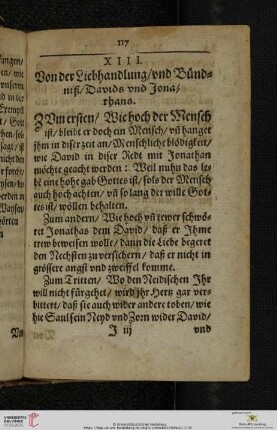 117
XIII.
Von der Liebhandlung/vnd Bünd-
niß/Davids vnd Jona-
thans.
ZVm ersten/Wie hoch der Mensch
ist/bleibt er doch ein Mensch/vñ hanget
jhm in diser zeit an/Menschliche blödigkeit/
wie David in diser Redt mit Jonathan
möchte geacht werden: Weil nuhn das le-
bē eine hohe gab Gottes ist/sols der Mensch
auch hoch achten/vñ so lang der wille Got-
tes ist/wöllen behalten.
Zum andern/Wie hoch vñ tewer schwö-
ret Jonathas dem David/daß er Ihme
trew beweisen wolle/dann die Liebe begeret
den Nechsten zu versichern/daß er nicht in
grössere angst vnd zweiffel komme.
Zum Tritten/Wo den Neidischen Ihr
will nicht fürgehet/wird jhr Hertz gar ver-
bittert/daß sie auch wider andere toben/wie
hie Saul sein Neyd vnd Zorn wider David/
I iij
vnd